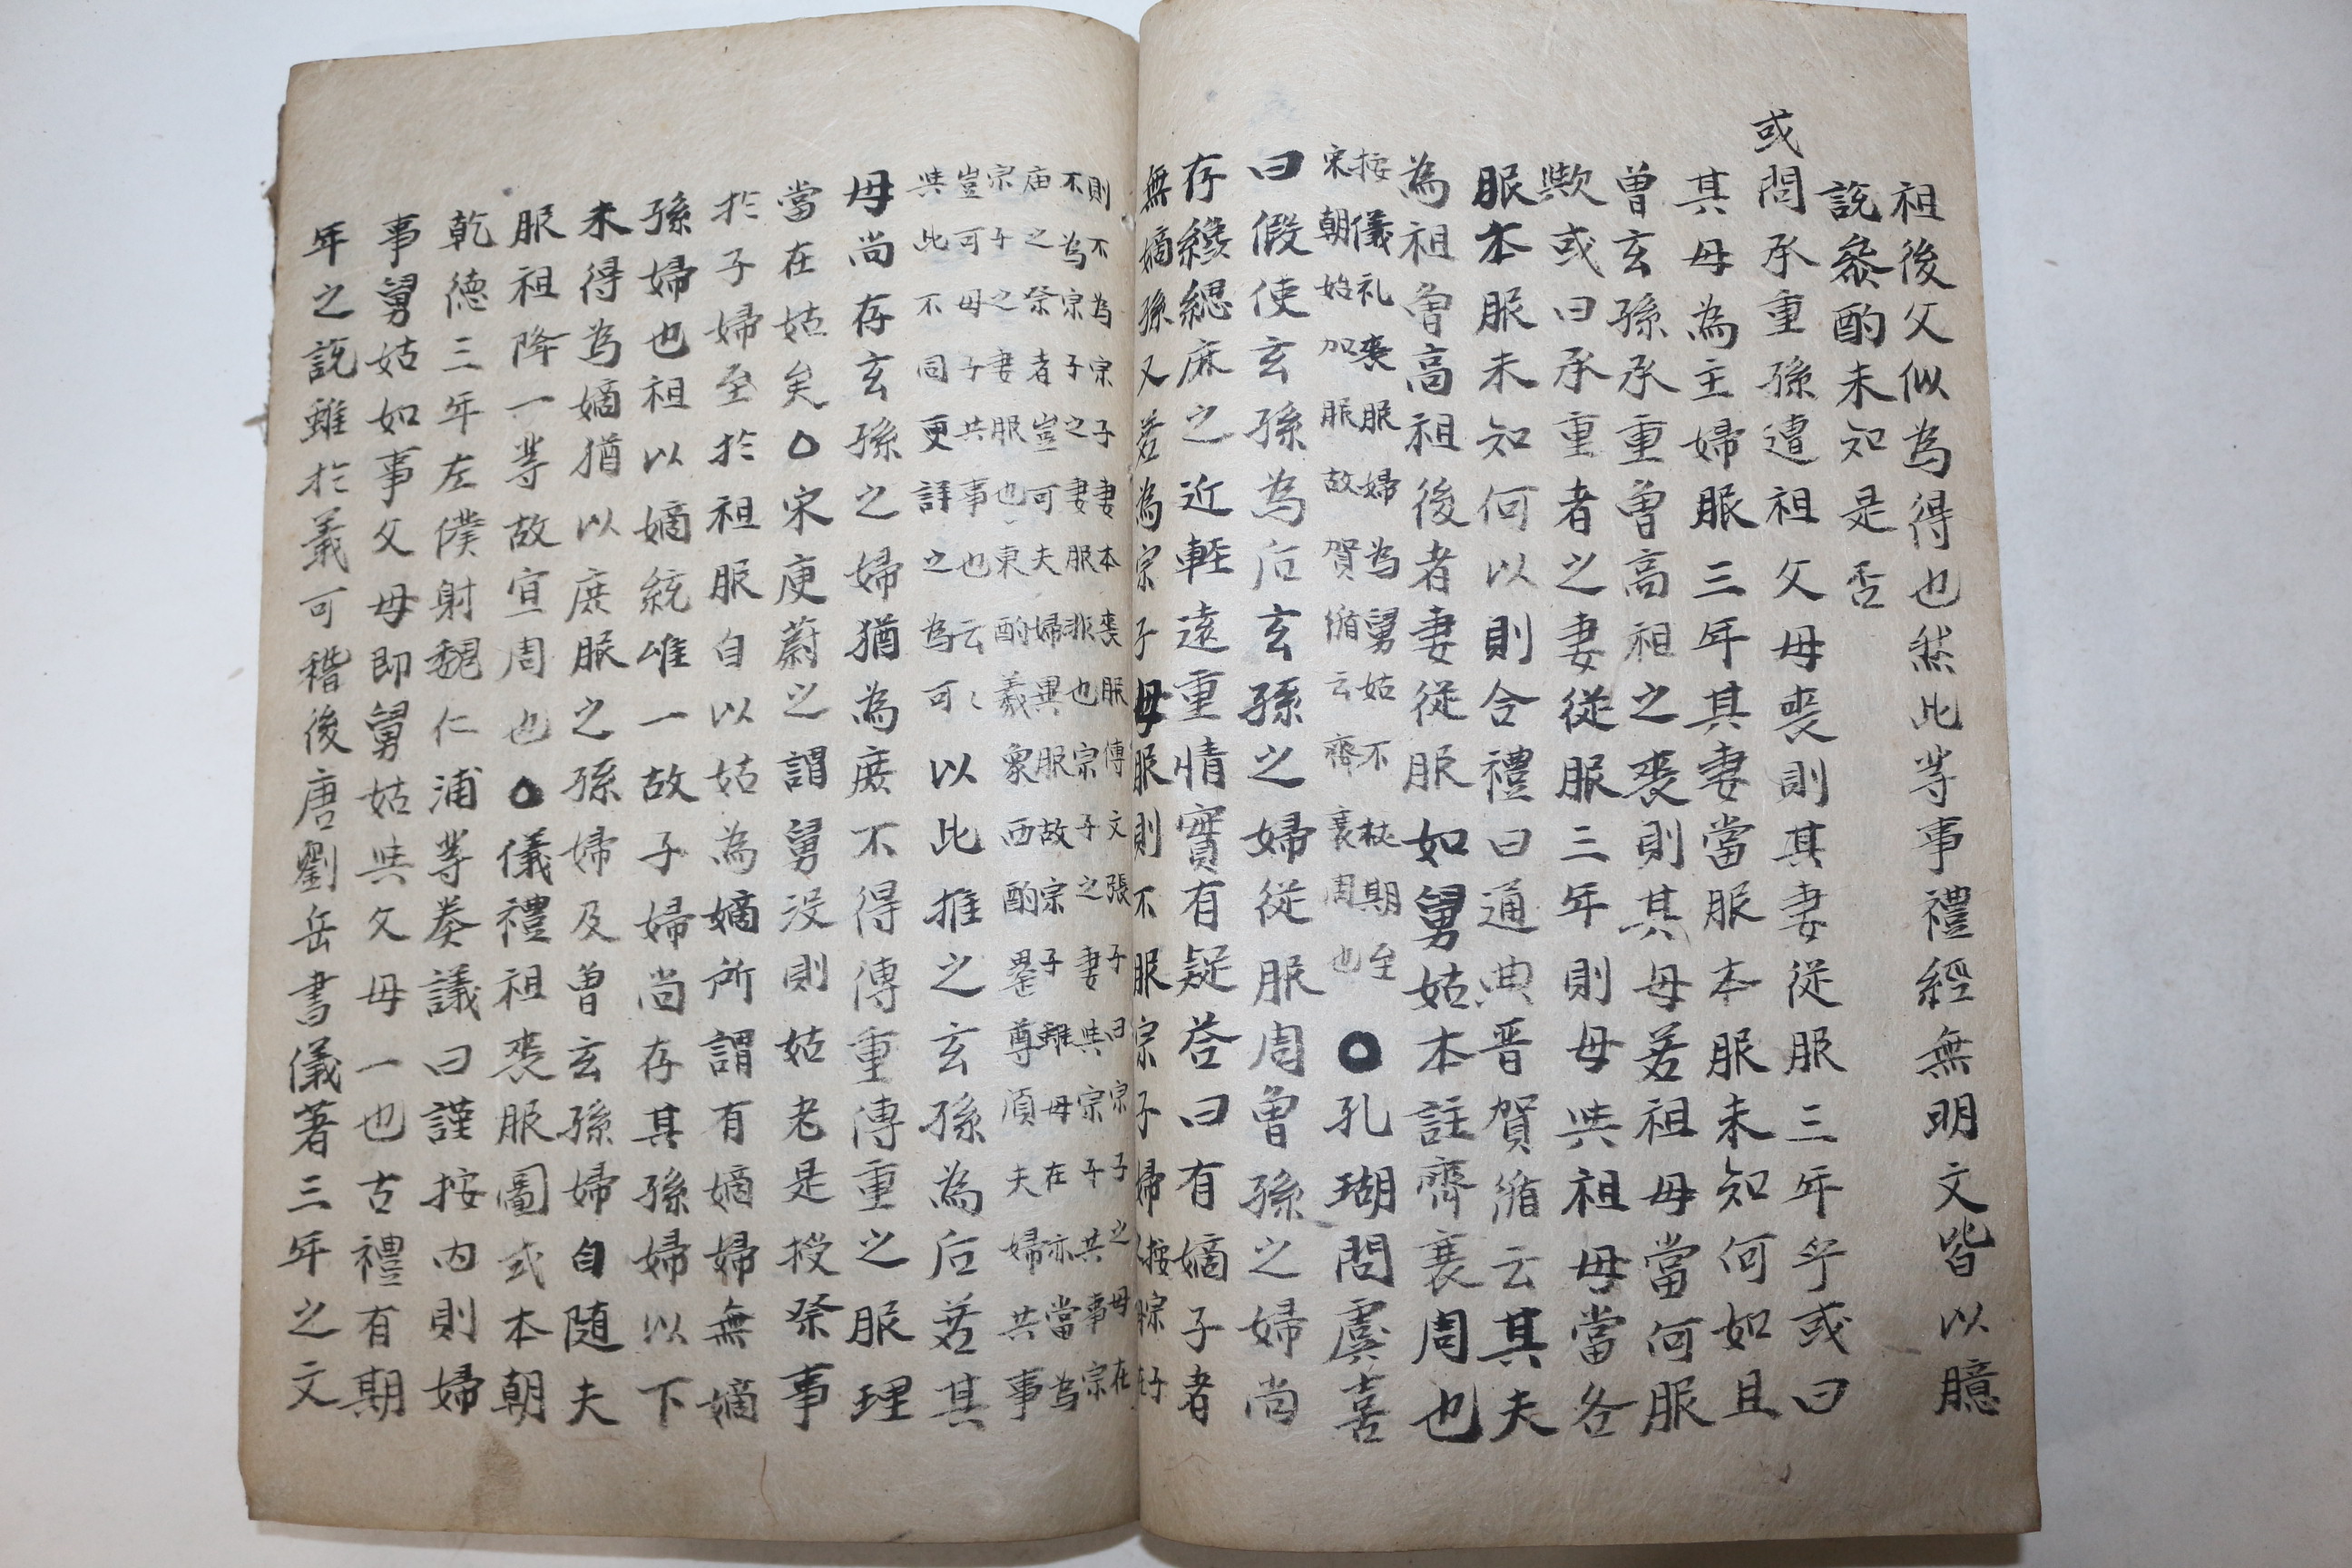 祖後父似為得也然此等事禮經無明文皆以臆
說叅酌未知是否
或問承重孫遭祖父母喪則其妻從服三年乎或曰
其母為主婦服三年其妻當服本服未知何如且
曾玄孫承重曾高祖之喪則其母若祖母當何服
歟或曰承重者之妻從服三年則母與祖母當各
服本服未知何以則合禮曰通典晋賀循云其夫
為祖曾高祖後者妻從服如舅姑本註齊衰周也
按儀礼喪服婦為舅姑不杖期至
宋朝始加服故賀循云齊衰周也
○孔瑚問虞喜
曰假使玄孫為后玄孫之婦從服周曾孫之婦尚
存纔緦麻之近輕遠重情實有疑答曰有嫡子者
無嫡孫又若為宗子母服則不服宗子婦
則不為宗子妻本喪服傳文張子曰宗子之母在
不為宗子之妻服非也宗子之妻與宗子共事宗
庙之祭者豈可夫婦異服故宗子雖母在亦當為
宗子之妻服也東酌羲象西酌罍尊湏夫婦共事
豈可母子共事也云〻
與此不同更詳之為可
以此推之玄孫為后若其
母尚存玄孫之婦猶為庶不得傳重傳重之服理
當在姑矣○宋庾蔚之謂舅没則姑老是授祭事
於子婦至於祖服自以姑為嫡所謂有嫡婦無嫡
孫婦也祖以嫡統唯一故子婦尚存其孫婦以下
未得為嫡猶以庶服之孫婦及曾玄孫婦自随夫
服祖降一等故宣周也○儀禮祖喪服圖式本朝
乾德三年左僕射魏仁浦等奏議曰謹按内則婦
事舅姑如事父母即舅姑與父母一也古禮有期
年之說雖於義可稽後唐劉岳書儀著三年之文